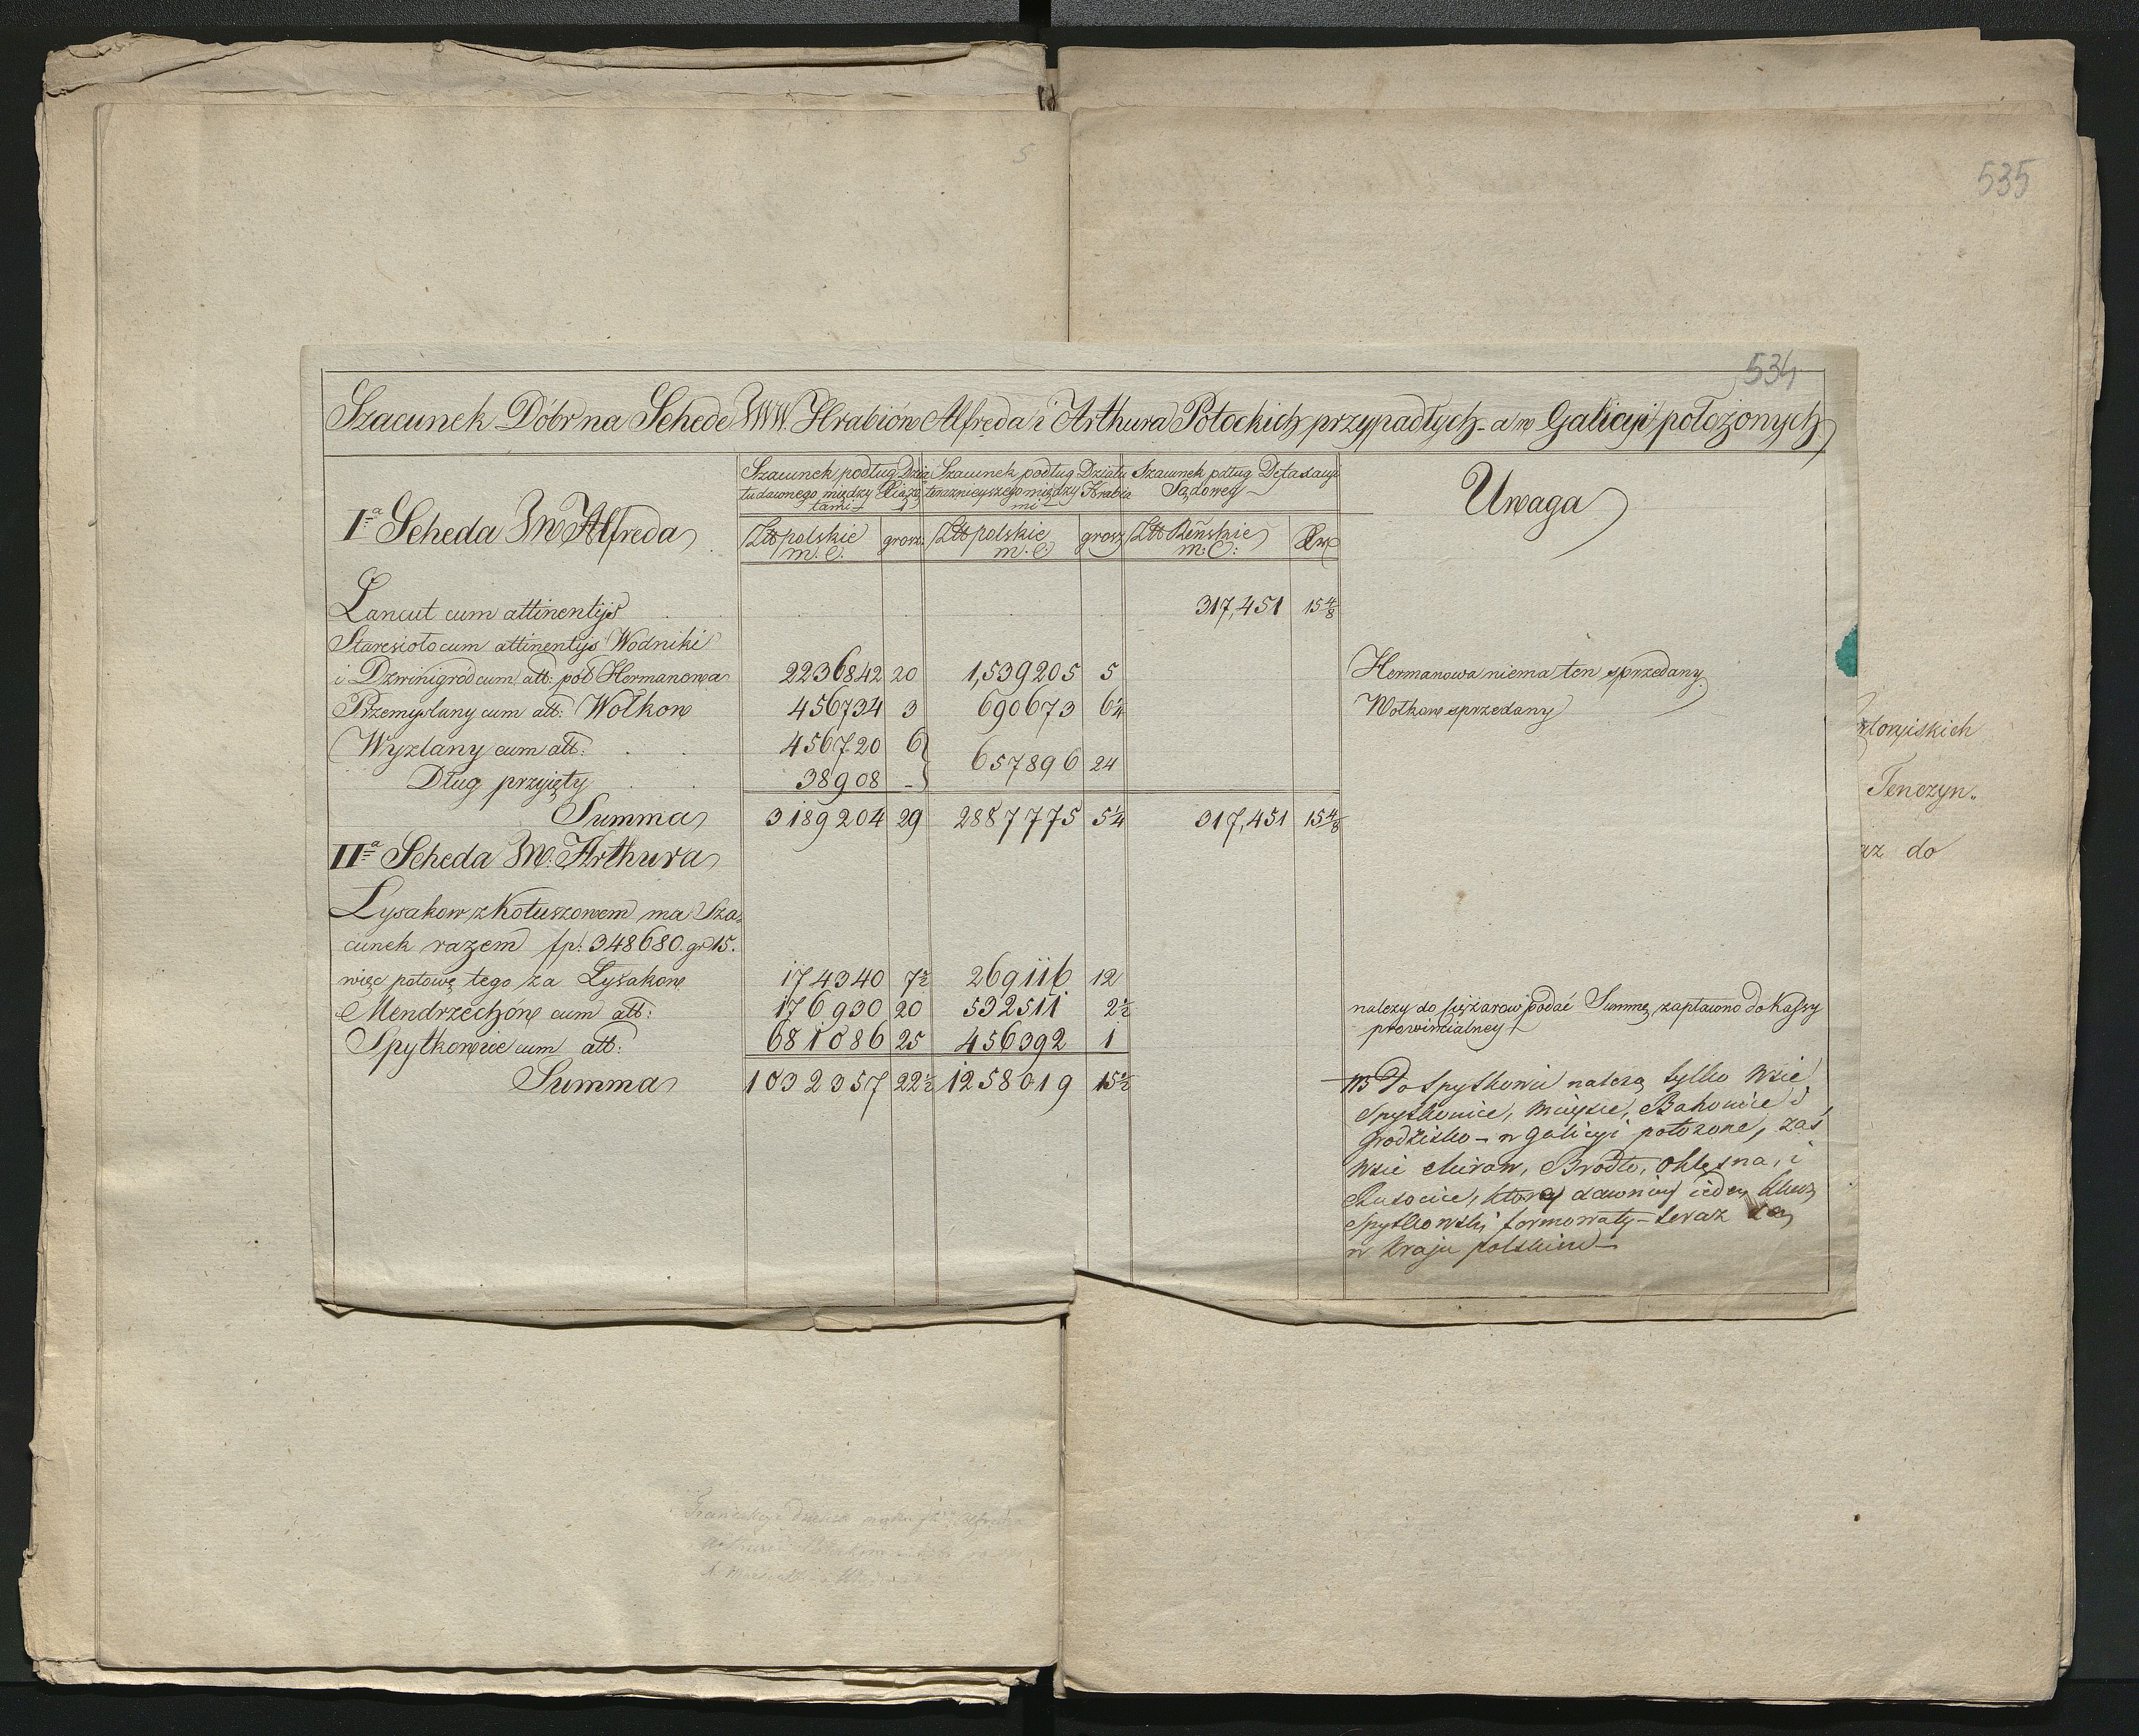 5
535
534
Szacunek Dóbr na Schede JWW. Hrabiów Alfreda i Arthura Potockich przypadłych a w Galicyi położonych
Iª Scheda JW Alfreda
Szacunek podług Dzia Szacunek podług Działu Szacunek podług Detaxacyi Uwaga
łu dawnego między Xiążę teraznieyszego między Hrabia Sądowey
tami mi
Złt polskie grosz. Złt polskie grosz Złt Reńskie Xr
m. C. m. C. m. C:
Lancut cum attinentijs 317,451 15 4/8
Staresioło cum attinentijs Wodniki
i Dzwinigród cum att: pół Hermanowa 2236842 20 1,539205 5 Hermanowa niema ten sprzedany
Przemyslany cum att: Wołkow 456734 3 690673 6¼ Wołkow sprzedany
Wyzlany cum att: 456720 6 657896 24
Dług przyięty 38908 -
Summa 3189204 29 2887775 5¼ 317,451 15 4/8
IIª Scheda JW. Arthura
Lysakow z Kotuszowem ma Sza
cunek razem fp. 348680. gr 15.
więc połowę tego za Lysakow 174340 7½ 269116 12
Mendrzechów cum att: 176930 20 532511 2½ nalezy do ciężarow podać Summę zapłacono do Kassy
prowincialney
Spytkowice cum att: 681086 25 456392 1
Summa 1032357 22½ 1258019 15½
NB Do Spytkowic należą tylko Wsie
Spytkowice, Mieysce, Bahowice i
Grodzisko - w Galicyi położone, zaś
Wsie Mirow, Brodło, Okleśna, i
Rusocice, które dawniey ieden klucz
Spytkowski formowały - teraz są
w Kraju polskim
Tenczyn.
do